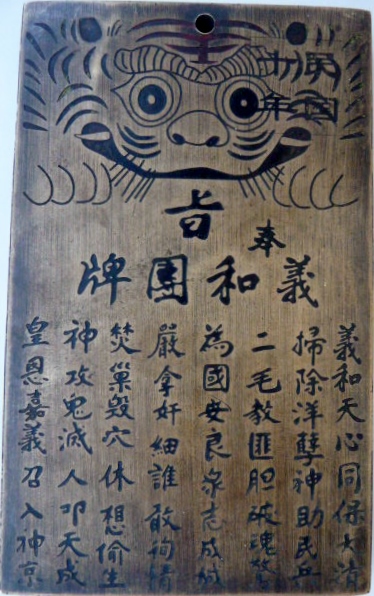 年
奉
旨
義和團牌
義和天心同保大清
掃除洋孽神助民兵
二毛教匪胆破魂驚
為國安良衆志成城
嚴拿奸細誰敢徇情
焚巢毀穴休想偷生
神攻鬼滅人叩天成
皇恩嘉義召入神京